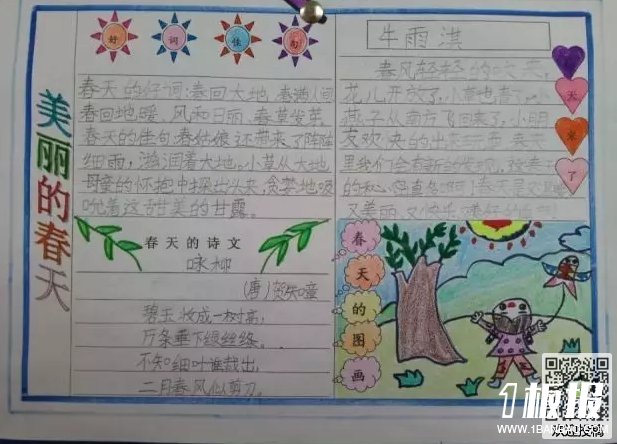 美丽的春天
好词佳句
春天的好词:春回大地、春满人间
春回地暖、风和日丽、春草发芽、
春天的佳句:春姑娘还带来了阵阵
细雨,滋润着大地。小草从大地
母亲的怀抱中探出头来,贪婪地吸
吮着这甜美的甘露。
春天的诗文
咏柳
(唐)贺知章
碧玉妆成一树高,
万条垂下绿丝绦。
不知细叶谁裁出,
二月春风似剪刀。
牛雨淇
春风轻轻的吹来,
花儿开放了,小草也青了,小
燕子从南方飞回来了,小朋
友欢快的出来
里我们会有新的发现,
又美丽,
天来了
春天的图画
1板报
WWW.1BANBAO.COM
欢迎投稿